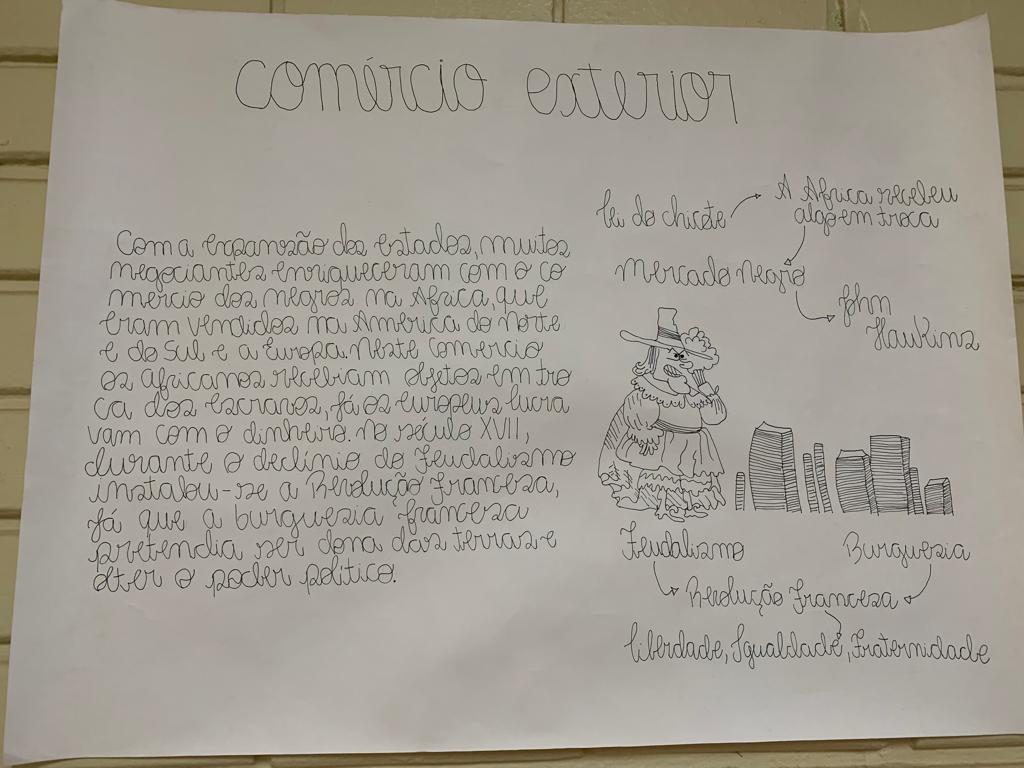 comércio exterior
Com a expansão dos estados, muitos
negociantes enriqueceram com o co
mercio dos negros na Africa, que
eram vendidos na América do Norte
e do Sul e a Europa. Neste comercio
os africanos recebiam objetos em tro
ca dos escravos, já os europeus lucra
vam com o dinheiro. No século XVII,
durante o declínio do Feudalismo
instalou-se a Revolução Francesa,
já que a burguesia francesa
pretendia ser dona das terras e
obter o poder político.
lei do chicote
A Africa recebeu
algo em troca
Mercado Negro
John
Hawkins
Feudalismo
Burguesia
Revolução Francesa
liberdade, Igualdade, Fraternidade